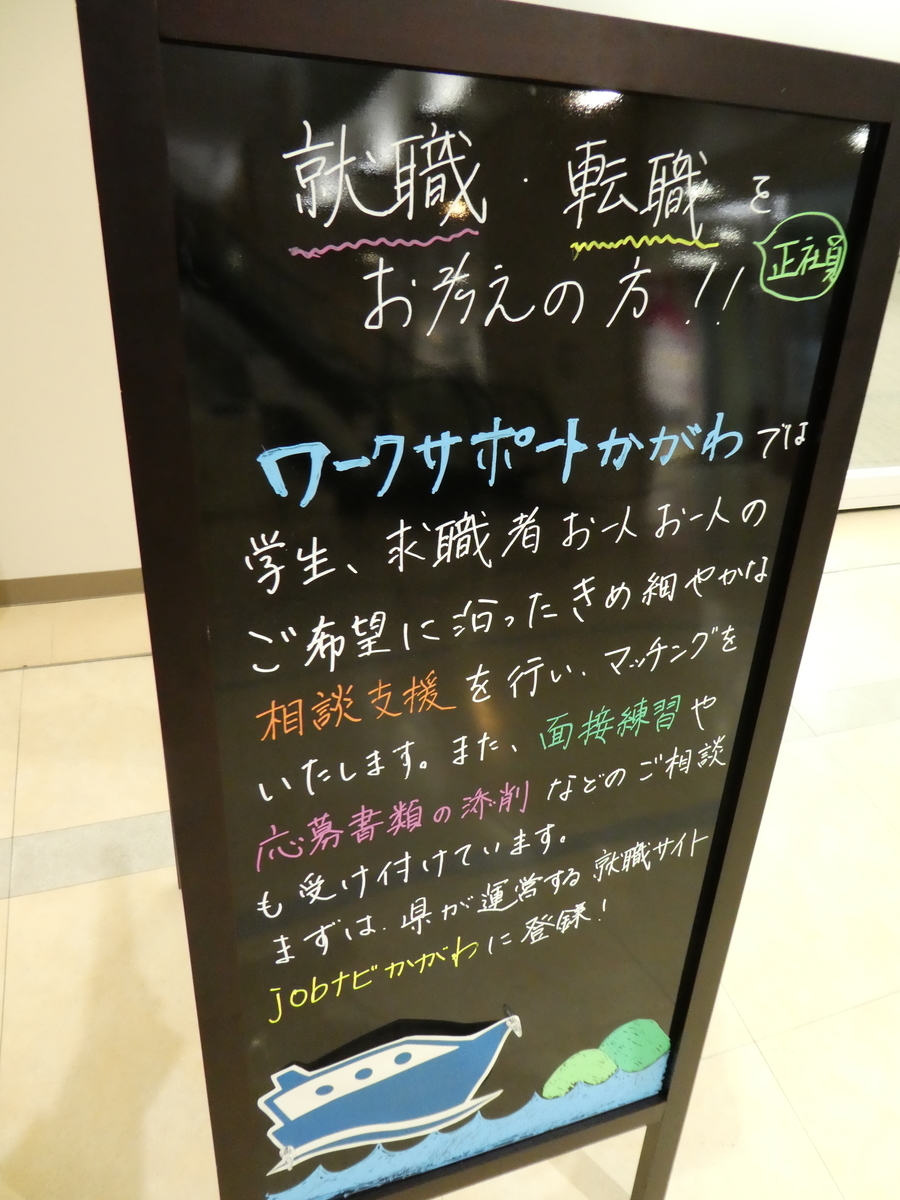 就職・転職を
正社員
お考えの方!!
ワークサポートかがわでは
学生、求職者お一人お一人の
ご希望に沿ったきめ細やかな
相談支援を行い、マッチングを
いたします。また、面接練習や
応募書類の添削などのご相談
も受け付けています。
まずは、県が運営する就職サイト
jobナビかがわに登録!